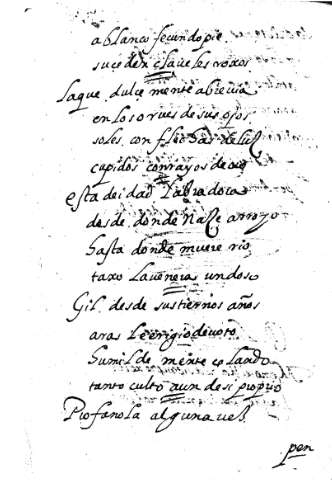 a blanco fecundo pie
suceden claveles roxos
la que dulce mente abreuia
en los orues de sus ojos
soles con flechas de luz
cupidos con rayos de oro
esta deidad labradora
desde donde naze arroyo
hasta donde muere rio
taxo la venera undoso
Gil desde sus tiernos años
aras le erigio devoto
humilde mente celando
tanto culto aun de si proprio
Profanola alguna ves
pen